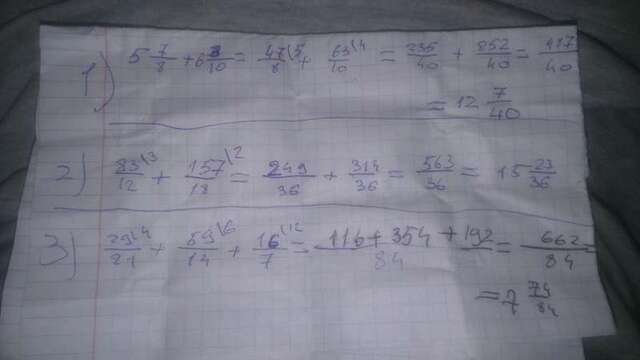 1) 5 7/8 + 6 3/10 = 47\5/8 + 63\4/10 = 235/40 + 252/40 = 487/40
= 12 7/40
2) 83\3/12 + 157\2/18 = 249/36 + 314/36 = 563/36 = 15 23/36
3) 29\4/21 + 59\6/14 + 16\12/7 = 116 + 354 + 192/84 = 662/84 =
= 7 74/84